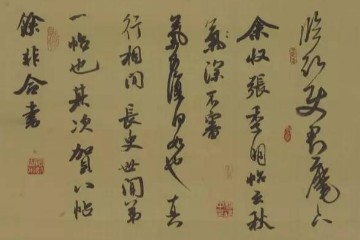 臨沂使君麾下
余收張季明帖云秋
氣深不審
氣力復何如也真
行相間長史世間第
一帖也其次賀八帖
餘非合書